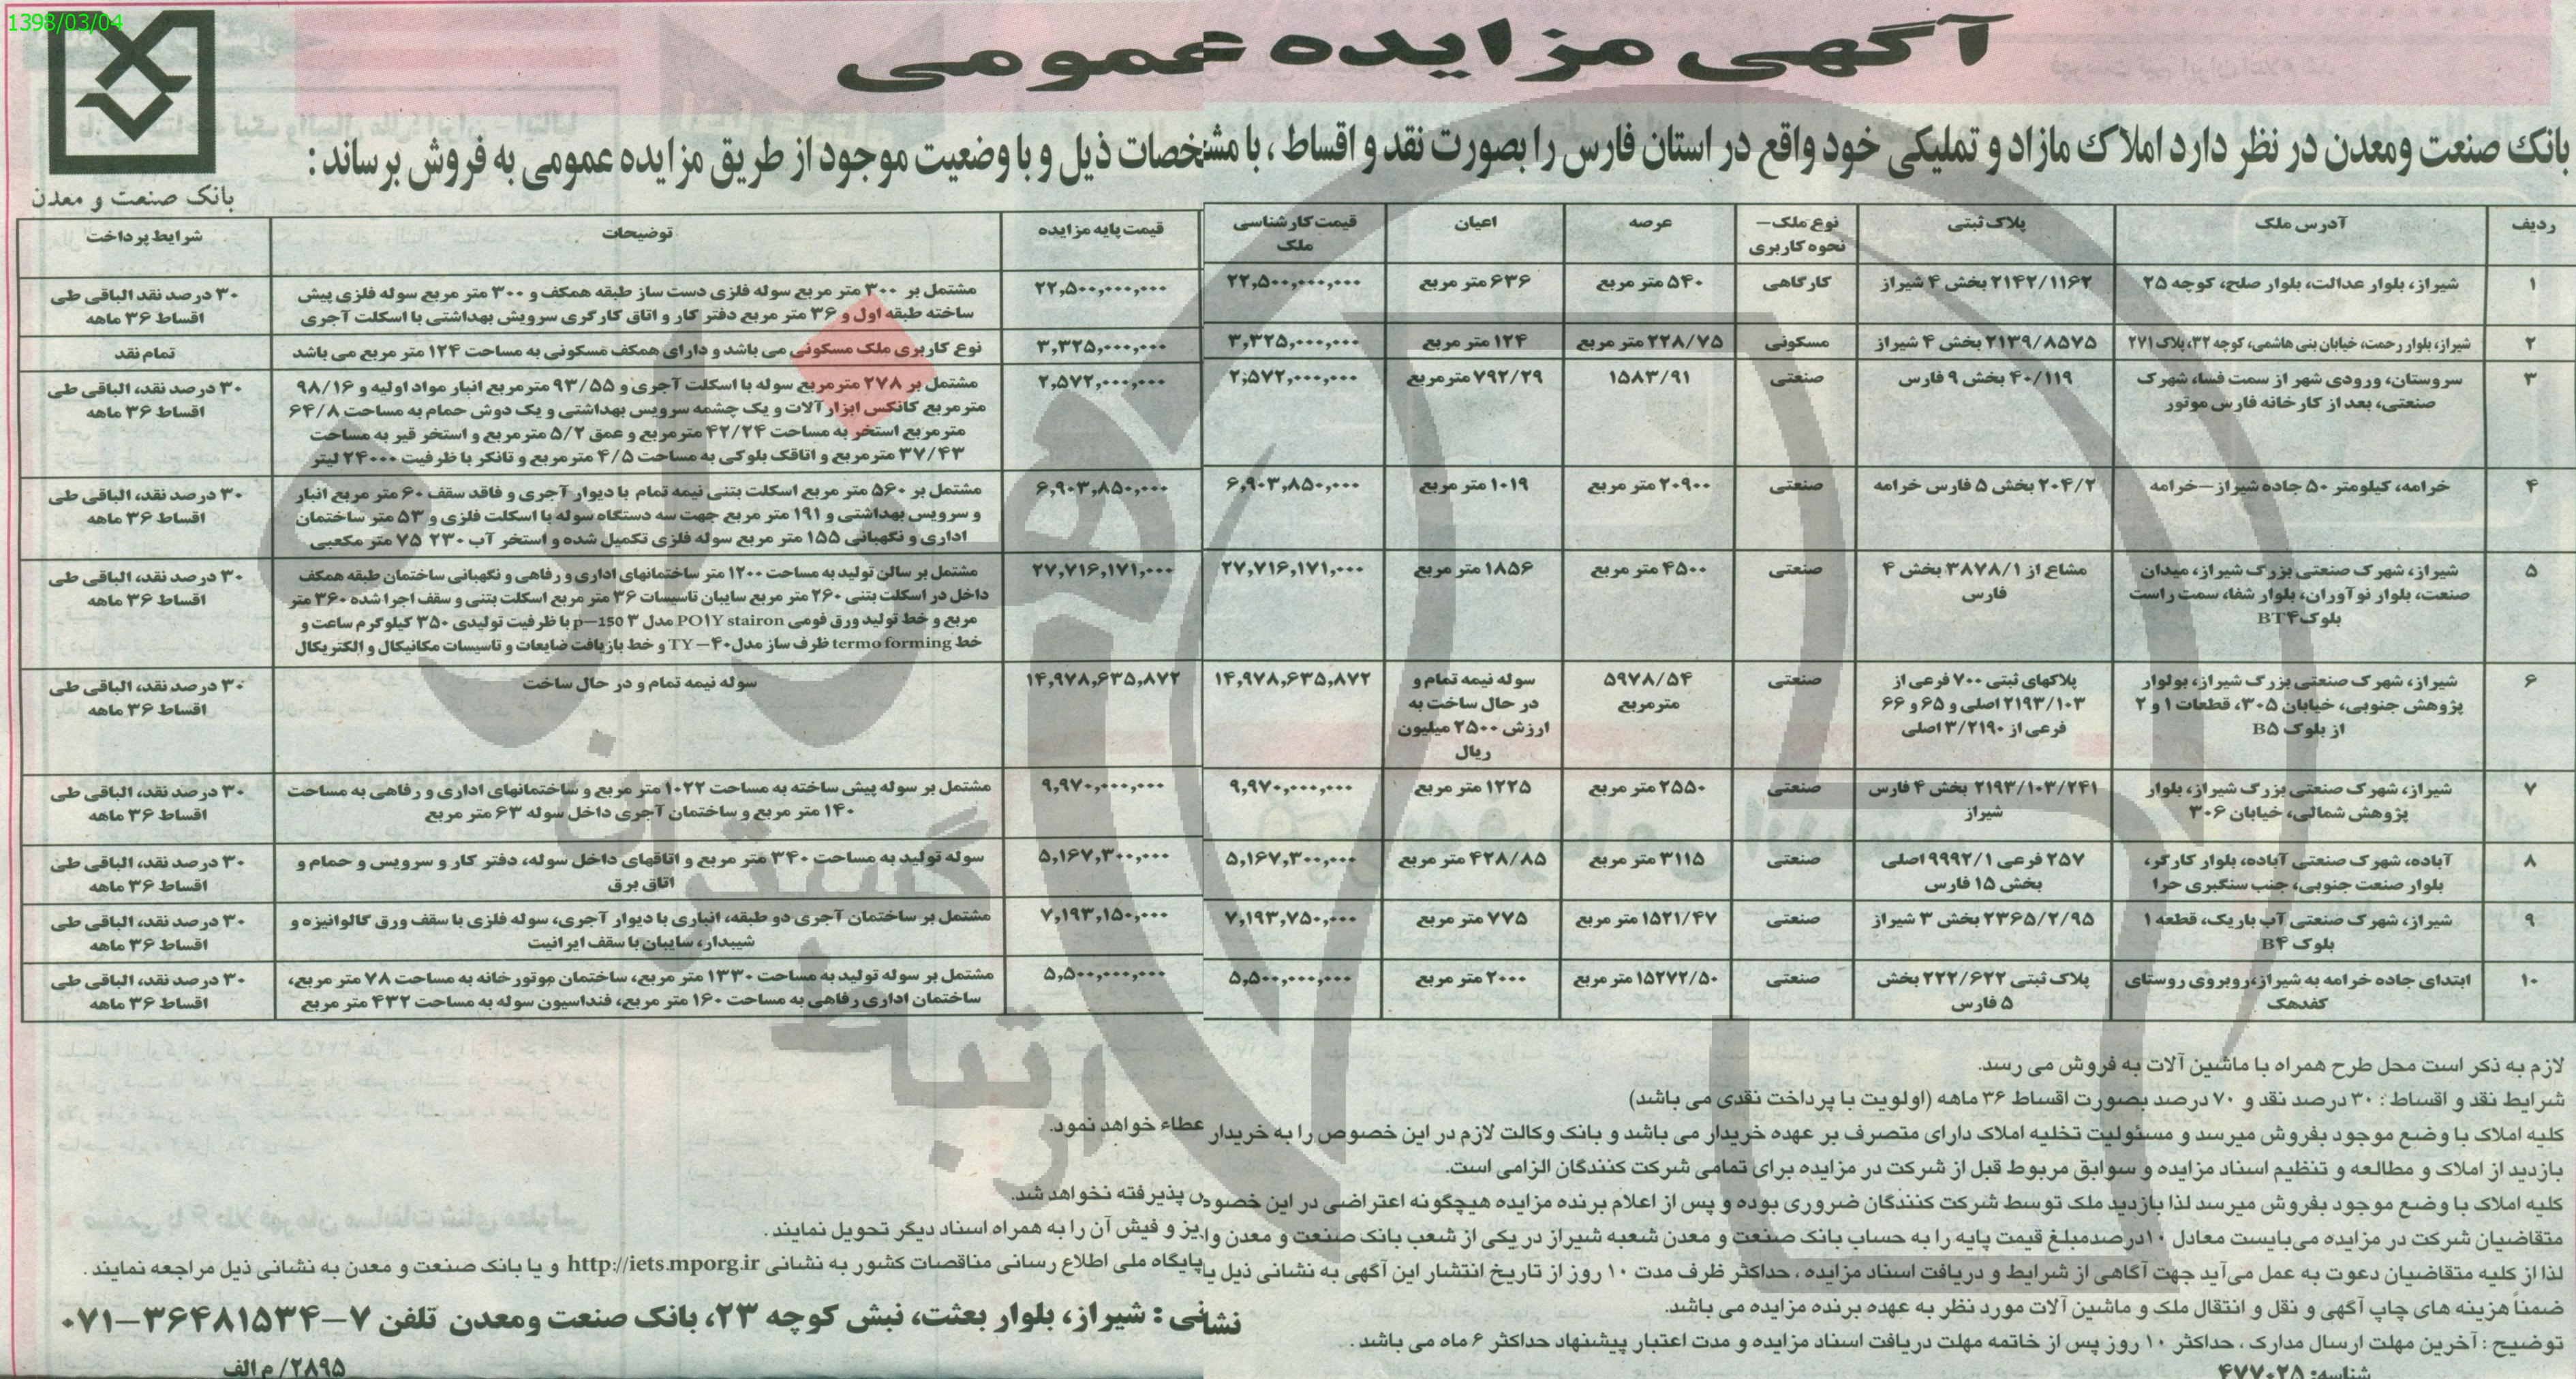 1398/03/04
آگهی مزایده عمومی
بانک صنعت و معدن
بانک صنعت ومعدن در نظر دارد املاک مازاد و تملیکی خود واقع در استان فارس را بصورت نقد و اقساط ، با مشخصات ذیل و با وضعیت موجود از طریق مزایده عمومی به فروش برساند :
ردیف آدرس ملک پلاک ثبتی نوع ملک– نحوه کاربری عرصه اعیان قیمت کارشناسی ملک قیمت پایه مزایده توضیحات شرایط پرداخت
۱ شیراز، بلوار عدالت، بلوار صلح، کوچه ۲۵ ۲۱۴۲/۱۱۶۲ بخش ۴ شیراز کارگاهی ۵۴۰ متر مربع ۶۳۶ متر مربع ۲۲,۵۰۰,۰۰۰,۰۰۰ ۲۲,۵۰۰,۰۰۰,۰۰۰ مشتمل بر ۳۰۰ متر مربع سوله فلزی دست ساز طبقه همکف و ۳۰۰ متر مربع سوله فلزی پیش
ساخته طبقه اول و ۳۶ متر مربع دفتر کار و اتاق کارگری سرویش بهداشتی با اسکلت آجری ۳۰ درصد نقد الباقی طی
اقساط ۳۶ ماهه
۲ شیراز، بلوار رحمت، خیابان بنی هاشمی، کوچه ۳۲، پلاک ۲۷۱ ۲۱۳۹/۸۵۷۵ بخش ۴ شیراز مسکونی ۲۲۸/۷۵ متر مربع ۱۲۴ متر مربع ۳,۳۲۵,۰۰۰,۰۰۰ ۳,۳۲۵,۰۰۰,۰۰۰ نوع کاربری ملک مسکونی می باشد و دارای همکف مسکونی به مساحت ۱۲۴ متر مربع می باشد تمام نقد
۳ سروستان، ورودی شهر از سمت فسا، شهرک
صنعتی، بعد از کارخانه فارس موتور ۴۰/۱۱۹ بخش ۹ فارس صنعتی ۱۵۸۳/۹۱ ۷۹۲/۲۹ مترمربع ۲,۵۷۲,۰۰۰,۰۰۰ ۲,۵۷۲,۰۰۰,۰۰۰ مشتمل بر ۲۷۸ مترمربع سوله با اسکلت آجری و ۹۳/۵۵ مترمربع انبار مواد اولیه و ۹۸/۱۶
مترمربع کانکس ابزارآلات و یک چشمه سرویس بهداشتی و یک دوش حمام به مساحت ۶۴/۸
مترمربع استخر به مساحت ۴۲/۲۴ مترمربع و عمق ۵/۲ مترمربع و استخر قیر به مساحت
۳۷/۴۳ مترمربع و اتاقک بلوکی به مساحت ۴/۵ مترمربع و تانکر با ظرفیت ۲۴۰۰۰ لیتر ۳۰ درصد نقد، الباقی طی
اقساط ۳۶ ماهه
۴ خرامه، کیلومتر ۵۰ جاده شیراز–خرامه ۲۰۴/۲ بخش ۵ فارس خرامه صنعتی ۲۰۹۰۰ متر مربع ۱۰۱۹ متر مربع ۶,۹۰۳,۸۵۰,۰۰۰ ۶,۹۰۳,۸۵۰,۰۰۰ مشتمل بر ۵۶۰ متر مربع اسکلت بتنی نیمه تمام با دیوار آجری و فاقد سقف ۶۰ متر مربع انبار
و سرویس بهداشتی و ۱۹۱ متر مربع جهت سه دستگاه سوله با اسکلت فلزی و ۵۳ متر ساختمان
اداری و نگهبانی ۱۵۵ متر مربع سوله فلزی تکمیل شده و استخر آب ۲۳۰ ۷۵ متر مکعبی ۳۰ درصد نقد، الباقی طی
اقساط ۳۶ ماهه
۵ شیراز، شهرک صنعتی بزرگ شیراز، میدان
صنعت، بلوار نوآوران، بلوار شفا، سمت راست
بلوک BT۴ مشاع از ۳۸۷۸/۱ بخش ۴
فارس صنعتی ۴۵۰۰ متر مربع ۱۸۵۶ متر مربع ۲۷,۷۱۶,۱۷۱,۰۰۰ ۲۷,۷۱۶,۱۷۱,۰۰۰ مشتمل بر سالن تولید به مساحت ۱۲۰۰ متر ساختمانهای اداری و رفاهی و نگهبانی ساختمان طبقه همکف
داخل در اسکلت بتنی ۲۶۰ متر مربع سایبان تاسیسات ۳۶ متر مربع اسکلت بتنی و سقف اجرا شده ۳۶۰ متر
مربع و خط تولید ورق فومی PO۱Y stairon مدل ۳ p–150 با ظرفیت تولیدی ۳۵۰ کیلوگرم ساعت و
خط termo forming ظرف ساز مدل TY–۴۰ و خط بازیافت ضایعات و تاسیسات مکانیکال و الکتریکال ۳۰ درصد نقد، الباقی طی
اقساط ۳۶ ماهه
۶ شیراز، شهرک صنعتی بزرگ شیراز، بولوار
پژوهش جنوبی، خیابان ۳۰۵، قطعات ۱ و ۲
از بلوک B۵ پلاکهای ثبتی ۷۰۰ فرعی از
۲۱۹۳/۱۰۳ اصلی و ۶۵ و ۶۶
فرعی از ۳/۲۱۹۰ اصلی صنعتی ۵۹۷۸/۵۴
مترمربع سوله نیمه تمام و
در حال ساخت به
ارزش ۲۵۰۰ میلیون
ریال ۱۴,۹۷۸,۶۳۵,۸۷۲ ۱۴,۹۷۸,۶۳۵,۸۷۲ سوله نیمه تمام و در حال ساخت ۳۰ درصد نقد، الباقی طی
اقساط ۳۶ ماهه
۷ شیراز، شهرک صنعتی بزرگ شیراز، بلوار
پژوهش شمالی، خیابان ۳۰۶ ۲۱۹۳/۱۰۳/۲۴۱ بخش ۴ فارس
شیراز صنعتی ۲۵۵۰ متر مربع ۱۲۲۵ متر مربع ۹,۹۷۰,۰۰۰,۰۰۰ ۹,۹۷۰,۰۰۰,۰۰۰ مشتمل بر سوله پیش ساخته به مساحت ۱۰۲۲ متر مربع و ساختمانهای اداری و رفاهی به مساحت
۱۴۰ متر مربع و ساختمان آجری داخل سوله ۶۳ متر مربع ۳۰ درصد نقد، الباقی طی
اقساط ۳۶ ماهه
۸ آباده، شهرک صنعتی آباده، بلوار کارگر،
بلوار صنعت جنوبی، جنب سنگبری حرا ۲۵۷ فرعی ۹۹۹۲/۱ اصلی
بخش ۱۵ فارس صنعتی ۳۱۱۵ متر مربع ۴۲۸/۸۵ متر مربع ۵,۱۶۷,۳۰۰,۰۰۰ ۵,۱۶۷,۳۰۰,۰۰۰ سوله تولید به مساحت ۳۴۰ متر مربع و اتاقهای داخل سوله، دفتر کار و سرویس و حمام و
اتاق برق ۳۰ درصد نقد، الباقی طی
اقساط ۳۶ ماهه
۹ شیراز، شهرک صنعتی آب باریک، قطعه ۱
بلوک B۴ ۲۳۶۵/۲/۹۵ بخش ۳ شیراز صنعتی ۱۵۲۱/۴۷ متر مربع ۷۷۵ متر مربع ۷,۱۹۳,۷۵۰,۰۰۰ ۷,۱۹۳,۱۵۰,۰۰۰ مشتمل بر ساختمان آجری دو طبقه، انباری با دیوار آجری، سوله فلزی با سقف ورق گالوانیزه و
شیبدار، سایبان با سقف ایرانیت ۳۰ درصد نقد، الباقی طی
اقساط ۳۶ ماهه
۱۰ ابتدای جاده خرامه به شیراز،روبروی روستای
کفدهک پلاک ثبتی ۲۲۲/۶۲۲ بخش
۵ فارس صنعتی ۱۵۲۷۲/۵۰ متر مربع ۲۰۰۰ متر مربع ۵,۵۰۰,۰۰۰,۰۰۰ ۵,۵۰۰,۰۰۰,۰۰۰ مشتمل بر سوله تولید به مساحت ۱۳۳۰ متر مربع، ساختمان موتورخانه به مساحت ۷۸ متر مربع،
ساختمان اداری رفاهی به مساحت ۱۶۰ متر مربع، فنداسیون سوله به مساحت ۴۳۲ متر مربع ۳۰ درصد نقد، الباقی طی
اقساط ۳۶ ماهه
لازم به ذکر است محل طرح همراه با ماشین آلات به فروش می رسد.
شرایط نقد و اقساط : ۳۰ درصد نقد و ۷۰ درصد بصورت اقساط ۳۶ ماهه (اولویت با پرداخت نقدی می باشد)
کلیه املاک با وضع موجود بفروش میرسد و مسئولیت تخلیه املاک دارای متصرف بر عهده خریدار می باشد و بانک وکالت لازم در این خصوص را به خریدار عطاء خواهد نمود.
بازدید از املاک و مطالعه و تنظیم اسناد مزایده و سوابق مربوط قبل از شرکت در مزایده برای تمامی شرکت کنندگان الزامی است.
کلیه املاک با وضع موجود بفروش میرسد لذا بازدید ملک توسط شرکت کنندگان ضروری بوده و پس از اعلام برنده مزایده هیچگونه اعتراضی در این خصوص پذیرفته نخواهد شد.
متقاضیان شرکت در مزایده می‌بایست معادل ۱۰درصدمبلغ قیمت پایه را به حساب بانک صنعت و معدن شعبه شیراز در یکی از شعب بانک صنعت و معدن واریز و فیش آن را به همراه اسناد دیگر تحویل نمایند .
لذا از کلیه متقاضیان دعوت به عمل می‌آید جهت آگاهی از شرایط و دریافت اسناد مزایده ، حداکثر ظرف مدت ۱۰ روز از تاریخ انتشار این آگهی به نشانی ذیل یا پایگاه ملی اطلاع رسانی مناقصات کشور به نشانی http://iets.mporg.ir و یا بانک صنعت و معدن به نشانی ذیل مراجعه نمایند .
ضمناً هزینه های چاپ آگهی و نقل و انتقال ملک و ماشین آلات مورد نظر به عهده برنده مزایده می باشد.
توضیح : آخرین مهلت ارسال مدارک ، حداکثر ۱۰ روز پس از خاتمه مهلت دریافت اسناد مزایده و مدت اعتبار پیشنهاد حداکثر ۶ ماه می باشد .
نشانی : شیراز، بلوار بعثت، نبش کوچه ۲۳، بانک صنعت ومعدن تلفن ۷–۳۶۴۸۱۵۳۴–۰۷۱
شناسه: ۴۷۷۰۲۵
۲۸۹۵/ م الف